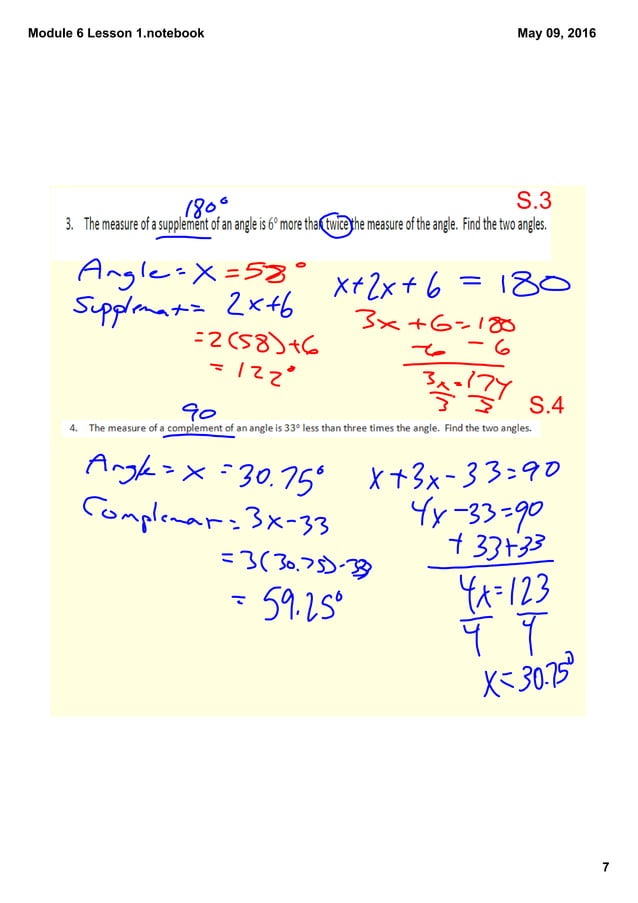 Module 6 Lesson 1.notebook
May 09, 2016
180°
S.3
3. The measure of a supplement of an angle is 6° more than twice the measure of the angle. Find the two angles.
Angle = x = 58°
x + 2x + 6 = 180
Supplemat = 2x+6
3x + 6 = 180
= 2(58)+6
-6 - 6
= 122°
3x = 174
3 3
S.4
90
4. The measure of a complement of an angle is 33° less than three times the angle. Find the two angles.
Angle = x = 30.75°
x + 3x - 33 = 90
Complemat = 3x - 33
4x - 33 = 90
+ 33 + 33
= 3(30.75) - 33
4x = 123
4 4
= 59.25°
x = 30.75°
7